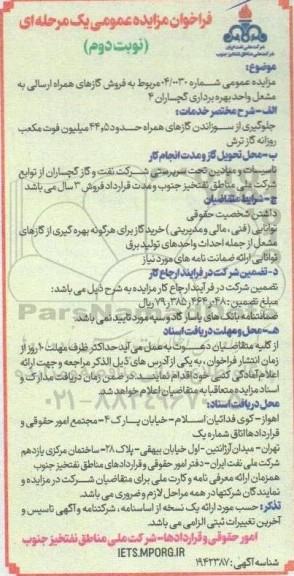 فراخوان مزایده عمومی یک مرحله ای
(نوبت دوم)
شرکت ملی نفت ایران
شرکت ملی مناطق نفتخیز جنوب
موضوع:
مزایده عمومی شماره ۰۴/۰۳۰ مربوط به فروش گازهای همراه ارسالی به
مشعل واحد بهره برداری گچساران ۴
الف- شرح مختصر خدمات:
جلوگیری از سوزاندن گازهای همراه حدود ۵ و ۴۴ میلیون فوت مکعب
روزانه گاز ترش
ب- محل تحویل گاز و مدت انجام کار
تاسیسات و میادین تحت سرپرستی شرکت نفت و گاز گچساران از توابع
شرکت ملی مناطق نفتخیز جنوب و مدت قرارداد فروش ۳ سال می باشد
ج- شرایط متقاضیان
داشتن شخصیت حقوقی
توانایی (فنی، مالی و مدیریتی) خرید گاز برای هرگونه بهره گیری از گازهای
مشعل از جمله احداث واحدهای تولید برق
توانایی ارائه ضمانت نامه های مورد نیاز
د- تضمین شرکت در فرایند ارجاع کار
تضمین شرکت در فرآیند ارجاع کار مزایده به شرح ذیل می باشد:
مبلغ تضمین: ۷۹,۳۸۵,۴۶۴,۰۴۸ ریال
ضمانتنامه بانک های پاسارگاد و سپه مورد تایید نمی باشد.
هـ- محل و مهلت دریافت اسناد
از کلیه متقاضیان دعوت به عمل می آید حداکثر ظرف مهلت ۱۰ روز از
زمان انتشار فراخوان، به یکی از آدرس های ذیل الذکر مراجعه و جهت ارائه
اعلام آمادگی کتبی خود اقدام نمایند. در ضمن زمان دریافت مدارک و
اسناد مزایده متعاقبا به متقاضیان اعلام خواهد شد.
محل دریافت اسناد:
اهواز- کوی فدائیان اسلام- خیابان پارک ۴- مجتمع امور حقوقی و
قراردادها اتاق شماره یک
تهران- میدان آرژانتین- اول خیابان بیهقی- پلاک ۲۸- ساختمان مرکزی یازدهم
شرکت ملی نفت ایران- دفتر امور حقوقی و قراردادهای مناطق نفتخیز جنوب
همزمان ارائه معرفی نامه و کارت ملی برای متقاضیان شرکت در مزایده و
نمایندگان شرکتها در همه مراحل لازم و ضروری می باشد.
تذکر: حسب مورد ارائه یک نسخه از اساسنامه، شرکتنامه و آگهی تاسیس و
آخرین تغییرات ثبتی الزامی می باشد.
امور حقوقی و قراردادها- شرکت ملی مناطق نفتخیز جنوب
IETS.MPORG.IR
شناسه آگهی: ۱۹۴۲۳۸۷